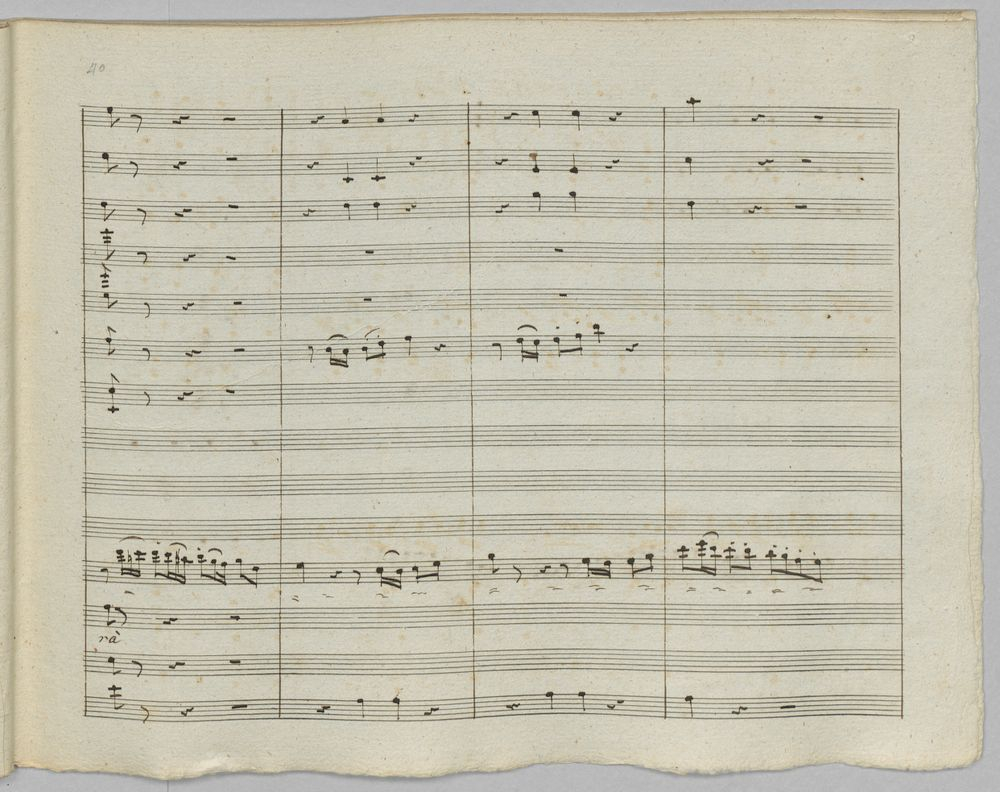 40
rà